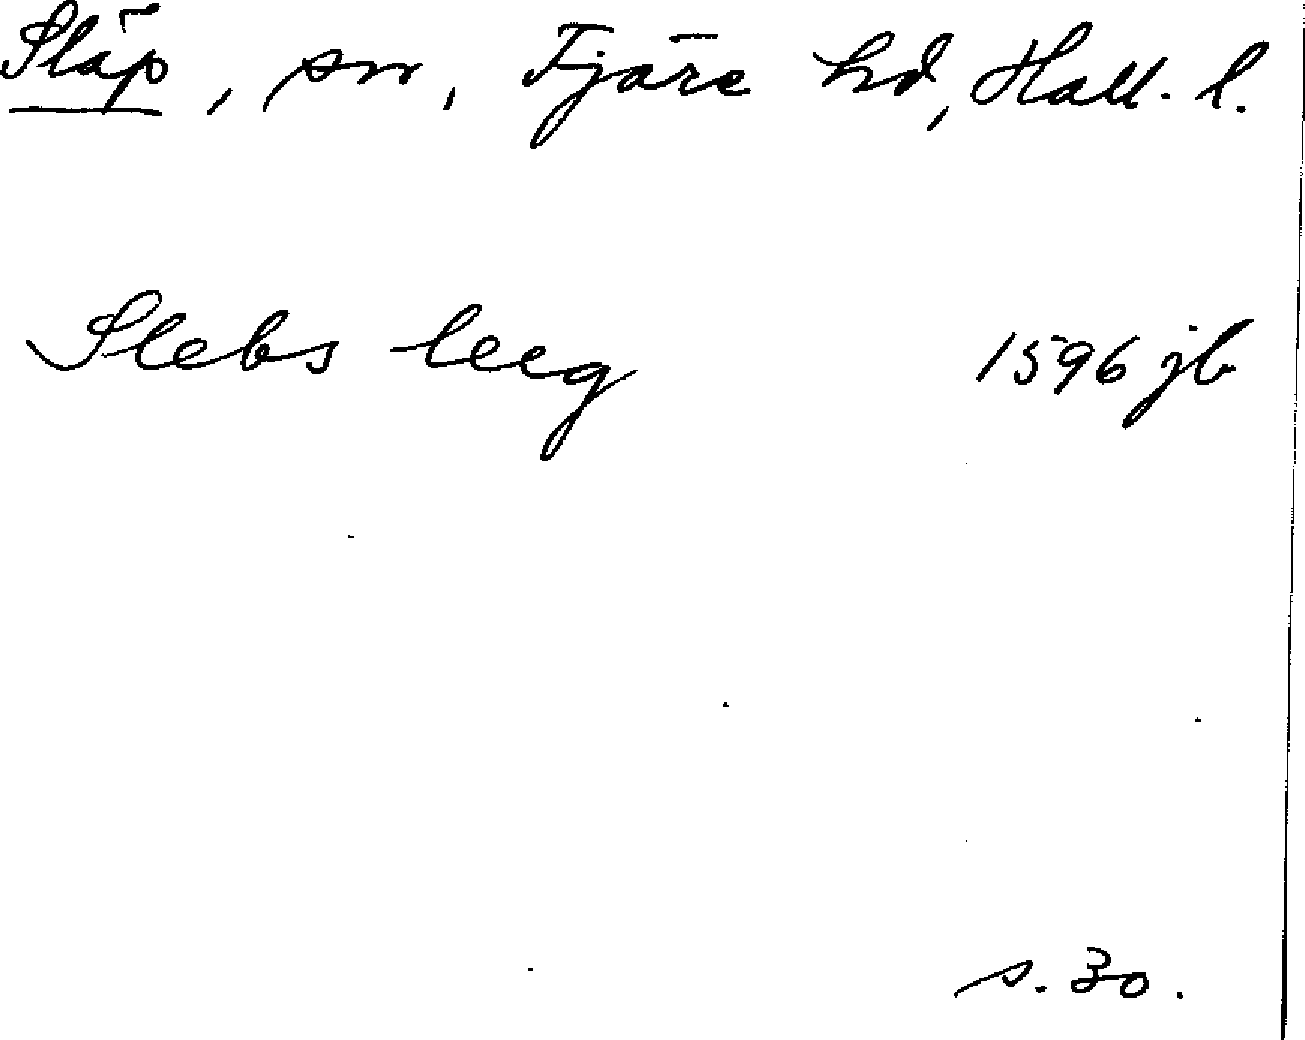 Släp, sn, Fjäre hd, Hall. l.
Slebs leeg 1596 jb
s. 30.